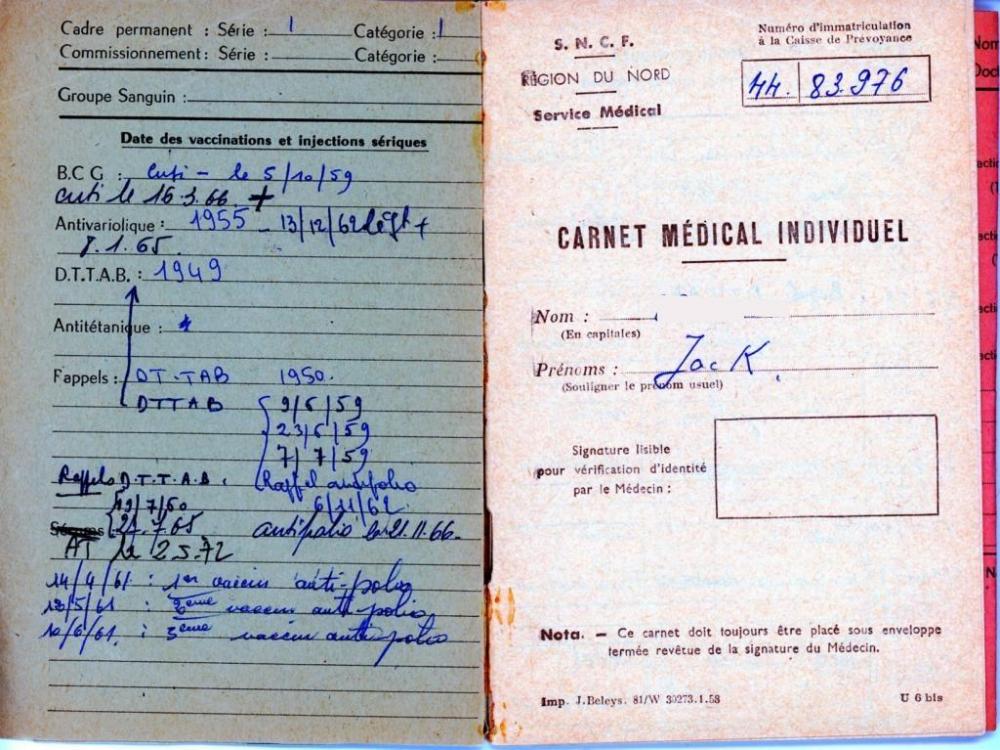 Cadre permanent : Série : 1 Catégorie : 1
Commissionnement : Série : Catégorie :
Groupe Sanguin :
Date des vaccinations et injections sériques
B.C G : Cuti - le 5/10/59
cuti le 16.3.66 +
Antivariolique : 1955 - 13/12/62 légt +
8.1.65
D.T.T.A.B. : 1949
Antitétanique :
Rappels : DT.TAB 1950.
DTTAB { 9/6/59
23/6/59
7/7/59
Rappels D.T.T.A.B. Rappel antipolio
19/7/60 6/11/62
Sérums 21.7.65 antipolio le 21.11.66.
AT le 2.5.72
14/4/61 : 1er vaccin anti-polio
12/5/61 : 2eme vaccin anti polio
10/6/61. : 3eme vaccin anti polio
S. N. C. F.
RÉGION DU NORD
Service Médical
Numéro d'immatriculation
à la Caisse de Prévoyance
44. 83.976
CARNET MÉDICAL INDIVIDUEL
Nom :
(En capitales)
Prénoms : Jack.
(Souligner le prénom usuel)
Signature lisible
pour vérification d'identité
par le Médecin :
Nota. — Ce carnet doit toujours être placé sous enveloppe
fermée revêtue de la signature du Médecin.
Imp. J.Beleys. 81/W 30273.1.58 U 6 bis